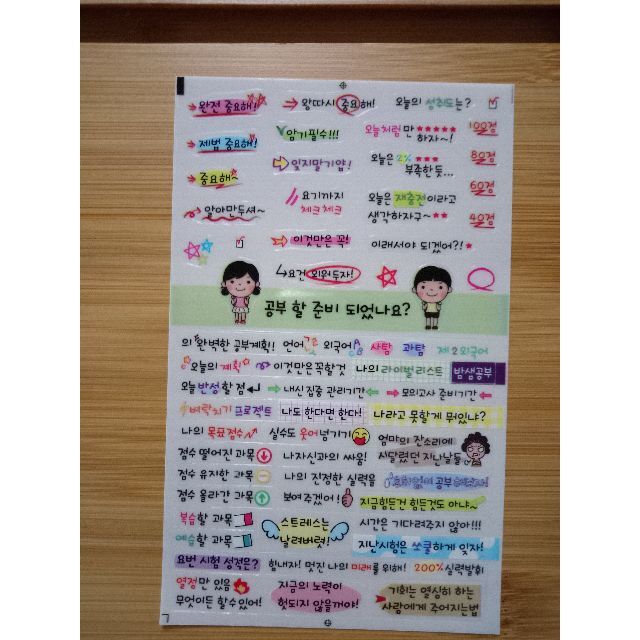 완전 중요해!
왕따시 중요해!
오늘의 성취도는?
제법 중요해!
암기필수!!!
오늘처럼만
하자~!
100점
중요해~
잊지말기얍!
오늘은 2%
부족한듯...
80점
알아만두셔~
요기까지
체크체크
오늘은 재충전이라고
생각하자구~
60점
40점
이것만은 꼭!
이래서야 되겠어?!
요건 외워두자!
공부 할 준비 되었나요?
의 완벽한 공부계획!!
언어
외국어
사탐
과탐
제2외국어
오늘의 계획
이것만은꼭할것
나의 라이벌리스트
밤샘공부
오늘 반성할 점
내신집중 관리기간
모의고사 준비기간
벼락치기 프로젝트
나도 한다면 한다!
나라고 못할게 뭐있나?
나의 목표점수
실수도 웃어넘기기
엄마의 잔소리에
시달렸던 지난날들
점수 떨어진 과목
나자신과의 싸움!
점수 유지한 과목
나의 진정한 실력을
보여주겠어!
점수 올라간 과목
지금힘든건 힘든것도 아냐~
복습할 과목
스트레스는
날려버렷!
시간은 기다려주지 않아!!!
예습할 과목
지난시험은 쏘쿨하게 잊자!
요번 시험 성적은?
힘내자! 멋진 나의 미래를 위해!
200% 실력발휘
열정만 있음
무엇이든 할수있어!
지금의 노력이
헛되지 않을꺼야!
기회는 열심히 하는
사람에게 주어지는법